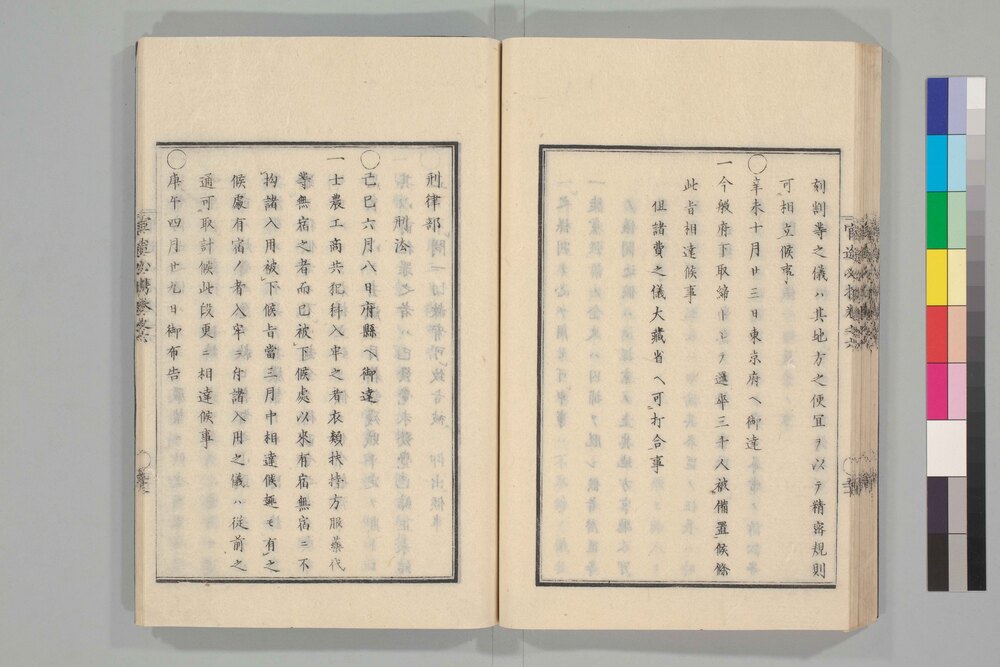 刻割等之儀ハ其地方之便宜ヲ以テ精密規則
可相立候事
○辛未十月廿三日東京府ヘ御達
一今般府下取締トシテ邏卒三千人被備置候條
此旨相達候事
但諸費之儀大藏省ヘ可打合事
刑律部
刑法
○己巳六月八日府縣ヘ御達
一士農工商共犯科入牢之者衣類扶持方服藥代
等無宿之者而已被下候處以來有宿無宿ニ不
拘諸入用被下候旨當三月中相達候趣モ有之
候處有宿ノ者入牢ニ付諸入用之儀ハ從前之
通可取計候此段更ニ相達候事
○庚午四月廿九日御布告